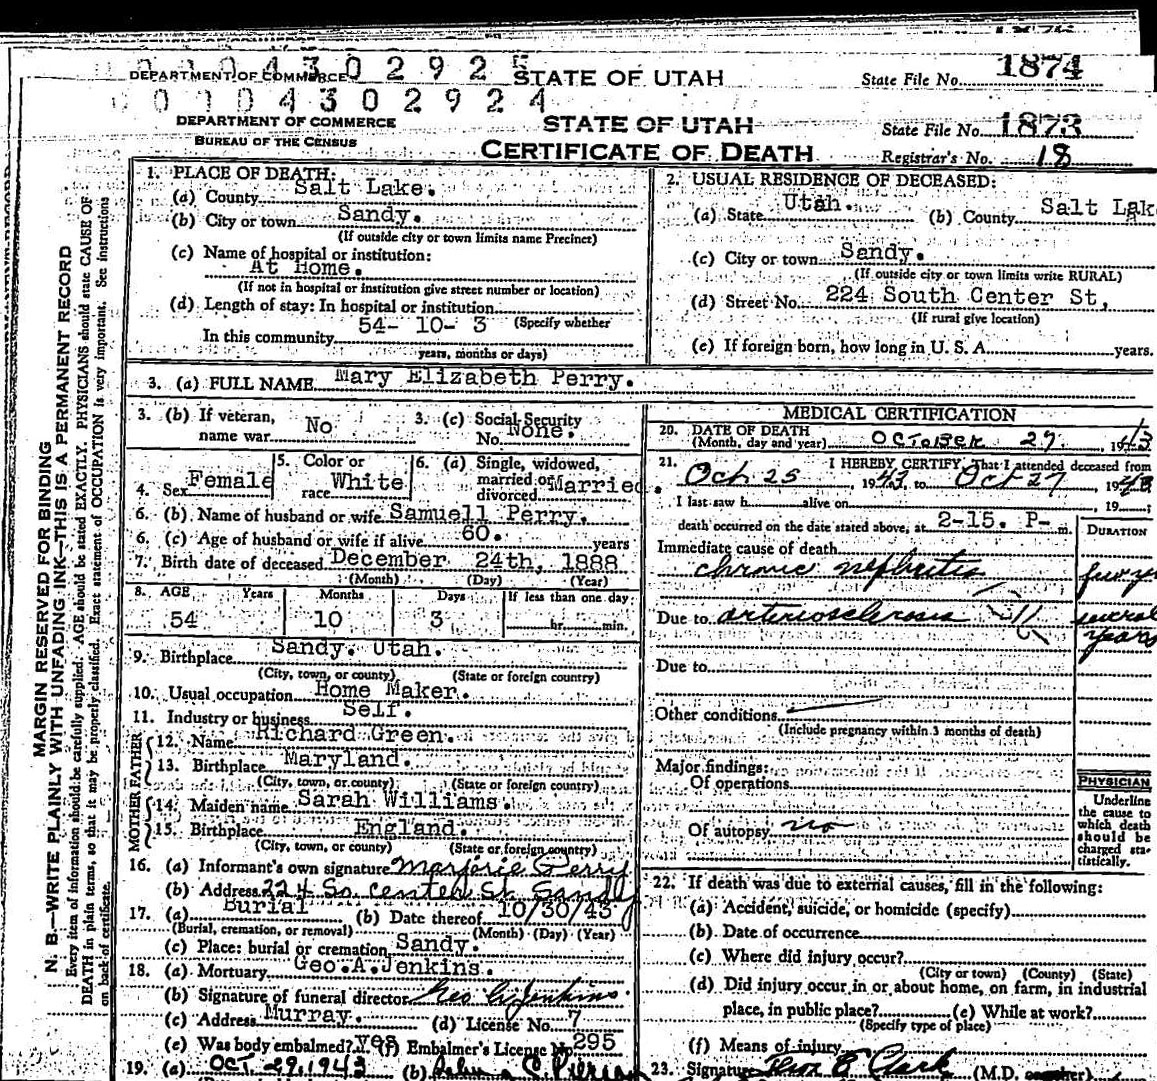 1874
0 0 0 4 3 0 2 9 2 5
DEPARTMENT OF COMMERCE STATE OF UTAH State File No. 1874
0 0 0 4 3 0 2 9 2 4
DEPARTMENT OF COMMERCE STATE OF UTAH State File No. 1873
BUREAU OF THE CENSUS CERTIFICATE OF DEATH Registrar's No. 18
MARGIN RESERVED FOR BINDING
N. B.—WRITE PLAINLY WITH UNFADING INK—THIS IS A PERMANENT RECORD
Every item of information should be carefully supplied. AGE should be stated EXACTLY. PHYSICIANS should state CAUSE OF
DEATH in plain terms, so that it may be properly classified. Exact statement of OCCUPATION is very important. See instructions
on back of certificate.
1. PLACE OF DEATH:
(a) County Salt Lake.
(b) City or town Sandy.
(If outside city or town limits name Precinct)
(c) Name of hospital or institution:
At Home.
(If not in hospital or institution give street number or location)
(d) Length of stay: In hospital or institution
54- 10- 3 (Specify whether
In this community
years, months or days)
2. USUAL RESIDENCE OF DECEASED:
(a) State Utah. (b) County Salt Lak
(c) City or town Sandy.
(If outside city or town limits write RURAL)
(d) Street No. 224 South Center St,
(If rural give location)
(e) If foreign born, how long in U. S. A. years.
3. (a) FULL NAME Mary Elizabeth Perry.
3. (b) If veteran, name war No 3. (c) Social Security No. None.
4. Sex Female 5. Color or race White 6. (a) Single, widowed, married or divorced Married
6. (b) Name of husband or wife Samuell Perry.
6. (c) Age of husband or wife if alive 60. years
7. Birth date of deceased December 24th, 1888
(Month) (Day) (Year)
8. AGE Years Months Days If less than one day
54 10 3 hr. min.
9. Birthplace Sandy. Utah.
(City, town, or county) (State or foreign country)
10. Usual occupation Home Maker.
11. Industry or business Self.
FATHER
12. Name Richard Green.
13. Birthplace Maryland.
(City, town, or county) (State or foreign country)
MOTHER
14. Maiden name Sarah Williams.
15. Birthplace England.
(City, town, or county) (State or foreign country)
16. (a) Informant's own signature Marjorie Perry
(b) Address 224 So. Center St Sandy
17. (a) Burial (b) Date thereof 10/30/43
(Burial, cremation, or removal) (Month) (Day) (Year)
(c) Place: burial or cremation Sandy.
18. (a) Mortuary Geo.A.Jenkins.
(b) Signature of funeral director Geo A Jenkins
(c) Address Murray. (d) License No. 7
(e) Was body embalmed? yes (f) Embalmer's License No. 295
19. (a) OCT 29, 1943 (b)
MEDICAL CERTIFICATION
20. DATE OF DEATH
(Month, day and year) OCTOBER 27 , 1943
21. I HEREBY CERTIFY, That I attended deceased from
Oct 25 1943, to Oct 27 1943
I last saw h alive on , 19 ;
death occurred on the date stated above, at 2-15. P- m. DURATION
Immediate cause of death
chronic nephritis few y
Due to arteriosclerosis several years
Due to
Other conditions
(Include pregnancy within 3 months of death)
Major findings:
Of operations
Of autopsy no
PHYSICIAN
Underline
the cause to
which death
should be
charged sta-
tistically.
22. If death was due to external causes, fill in the following:
(a) Accident, suicide, or homicide (specify)
(b) Date of occurrence
(c) Where did injury occur?
(City or town) (County) (State)
(d) Did injury occur in or about home, on farm, in industrial
place, in public place? (e) While at work?
(Specify type of place)
(f) Means of injury
23. Signature E Clark (M.D. or other)